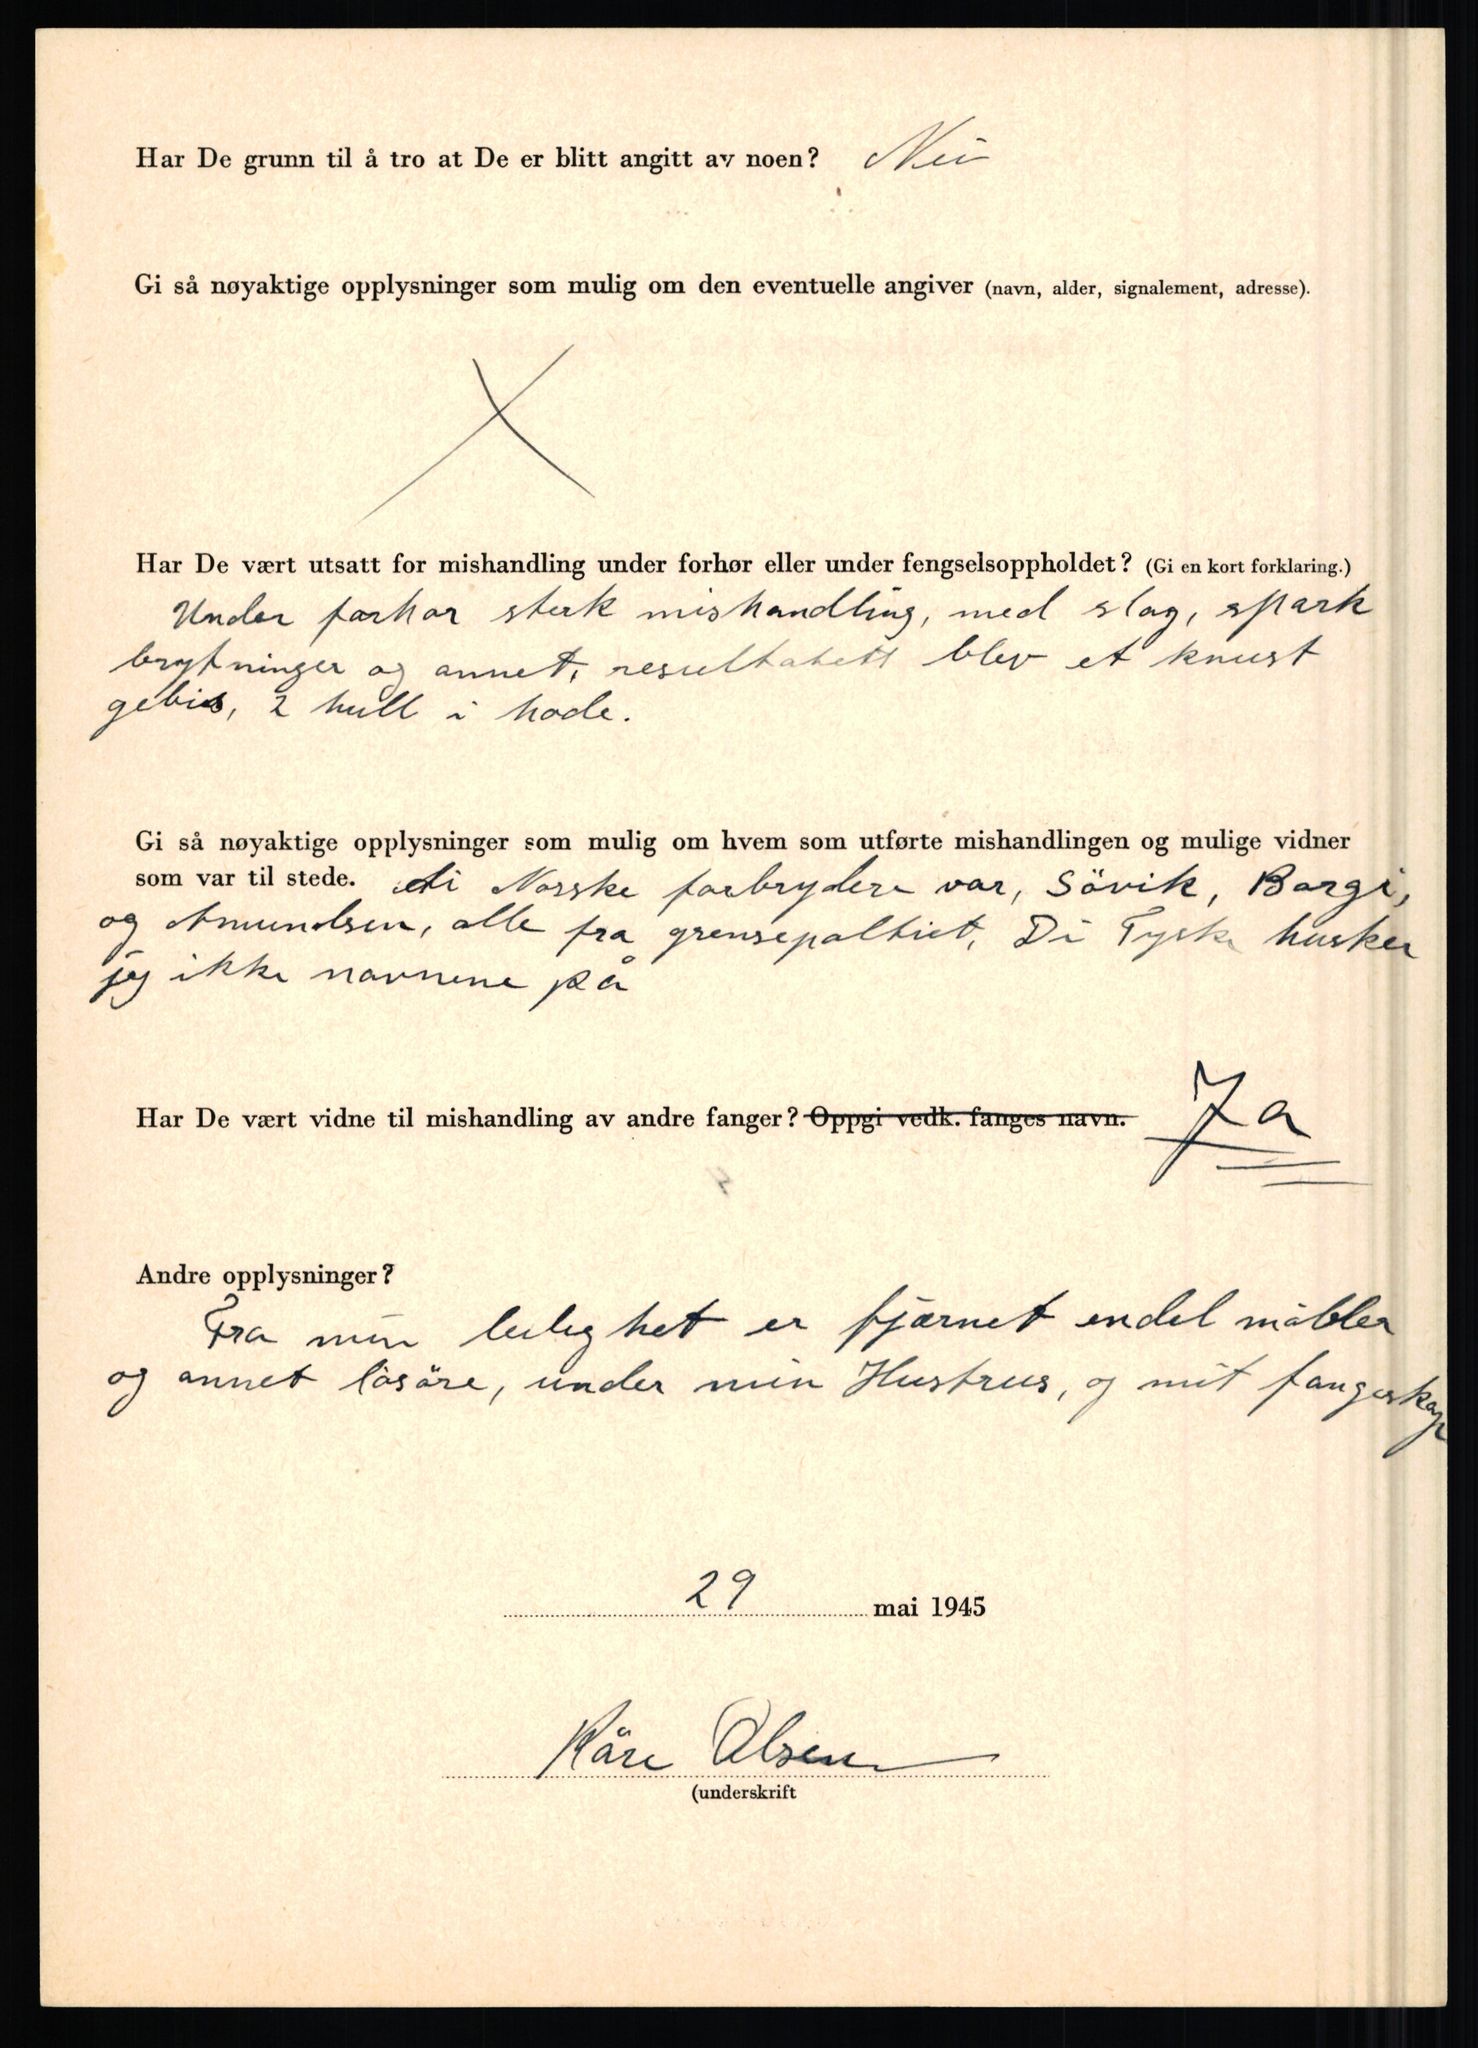 Har De grunn til å tro at De er blitt angitt av noen? Nei
Gi så nøyaktige opplysninger som mulig om den eventuelle angiver (navn, alder, signalement, adresse).
X
Har De vært utsatt for mishandling under forhør eller under fengselsoppholdet? (Gi en kort forklaring.)
Under forhør sterk mishandling, med slag, spark
brytninger og annet, resultatett blev et knust
gebis, 2 hull i hode.
Gi så nøyaktige opplysninger som mulig om hvem som utførte mishandlingen og mulige vidner
som var til stede. di Norske forbrydere var, Sövik, Borgi,
og Amundsen, alle fra grensepoltiet, Di Tyske husker
jeg ikke navnene på
Har De vært vidne til mishandling av andre fanger? Oppgi vedk. fanges navn. Ja
Andre opplysninger?
Fra min leilighet er fjærnet endel möbler
og annet lösöre, under min Hustrus, og mit fangeskap
29 mai 1945
Kåre Olsen
(underskrift